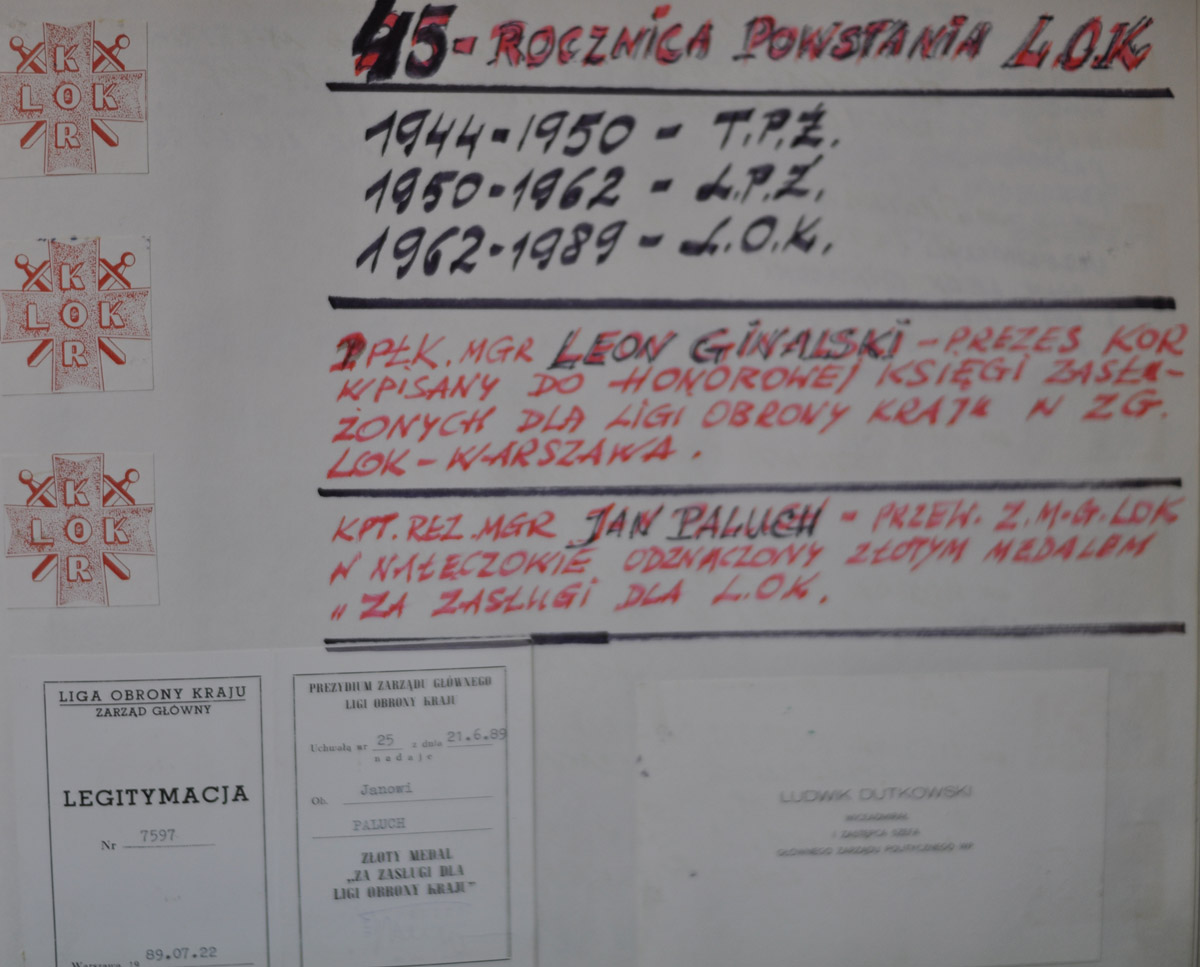 K
LOK
R
K
LOK
R
K
LOK
R
45-ROCZNICA POWSTANIA L.O.K
1944-1950 - T.P.Ż.
1950-1962 - L.P.Ż.
1962-1989 - L.O.K.
PPŁK. MGR LEON GINALSKI - PREZES KOR
WPISANY DO HONOROWEJ KSIĘGI ZASŁU-
ŻONYCH DLA LIGI OBRONY KRAJU W ZG.
LOK - WARSZAWA.
KPT. REZ. MGR JAN PALUCH - PRZEW. Z.M-G. LOK
W NAŁĘCZOWIE ODZNACZONY ZŁOTYM MEDALEM
„ZA ZASŁUGI DLA L.OK.
LIGA OBRONY KRAJU
ZARZĄD GŁÓWNY
LEGITYMACJA
Nr 7597
Warszawa 19 89.07.22
PREZYDIUM ZARZĄDU GŁÓWNEGO
LIGI OBRONY KRAJU
Uchwałą nr 25 z dnia 21.6.89
nadaje
Ob. Janowi
PALUCH
ZŁOTY MEDAL
„ZA ZASŁUGI DLA
LIGI OBRONY KRAJU”
LUDWIK DUTKOWSKI
WICEADMIRAŁ
I ZASTĘPCA SZEFA
GŁÓWNEGO ZARZĄDU POLITYCZNEGO WP